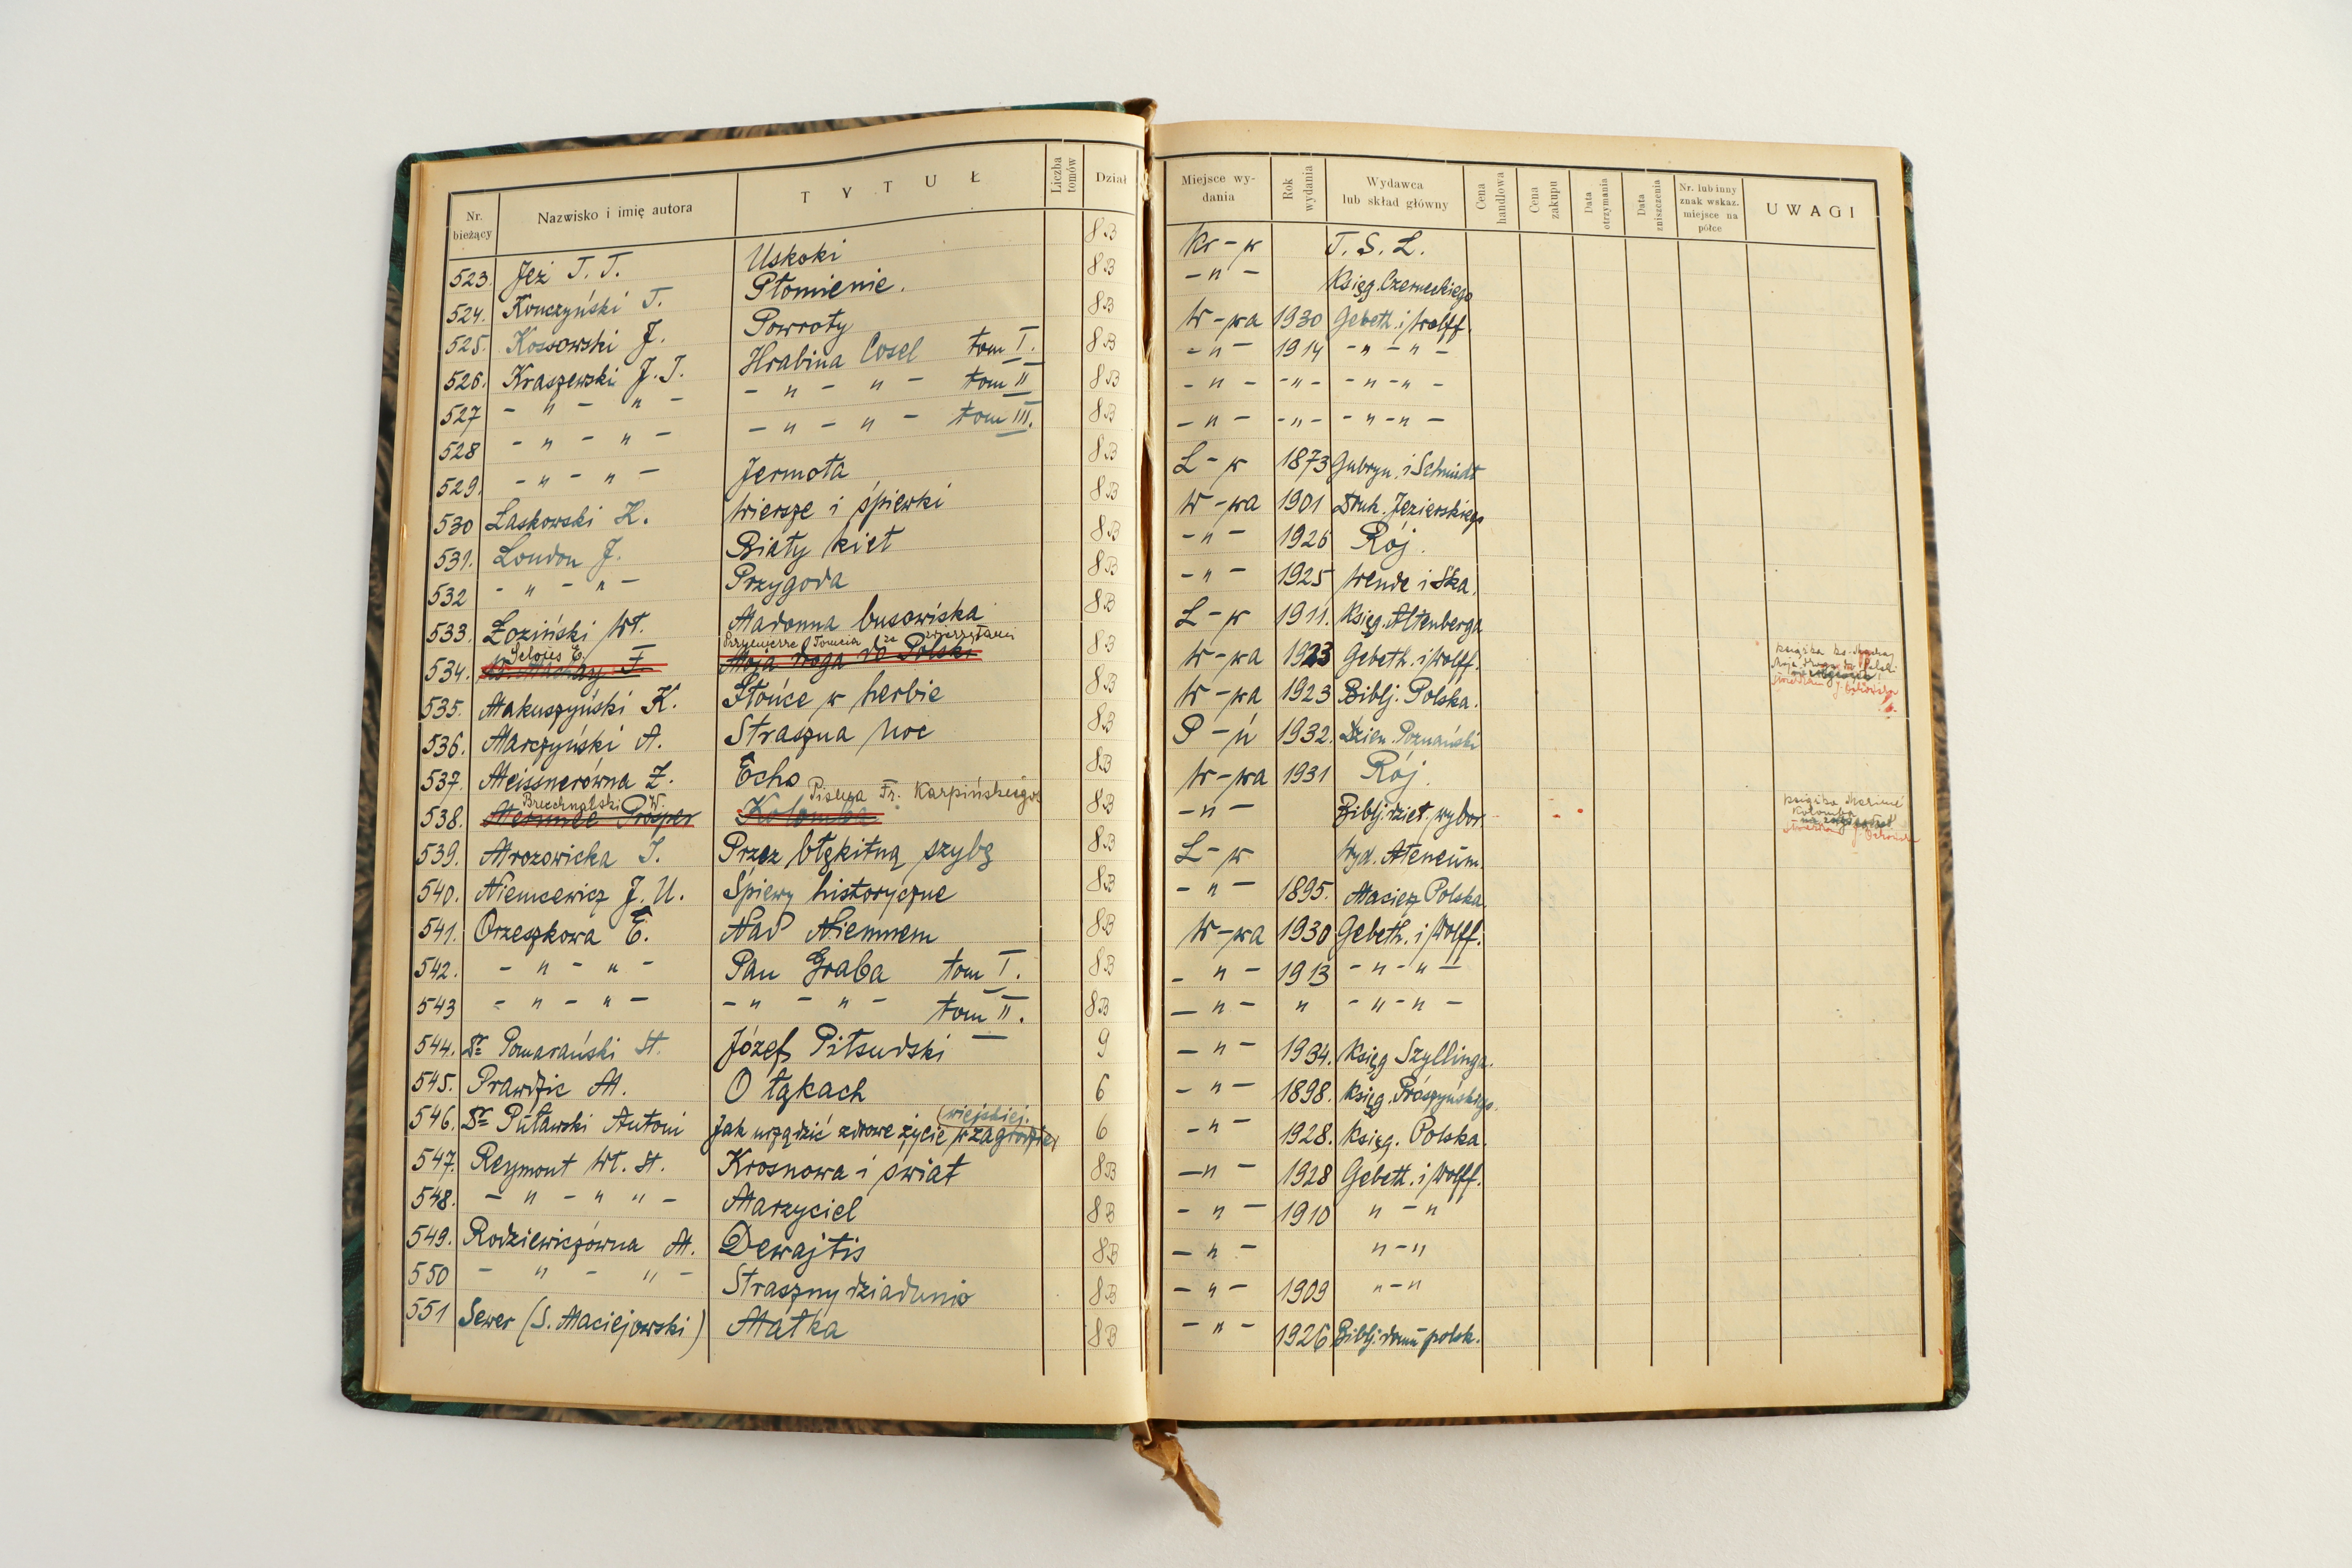 Nr. bieżący Nazwisko i imię autora TYTUŁ Liczba tomów Dział Miejsce wydania Rok wydania Wydawca lub skład główny Cena handlowa Cena zakupu Data otrzymania Data zniszczenia Nr. lub inny znak wskaz. miejsce na półce UWAGI
523. Jeż T. T. Uskoki 8B Kr-w T. S. L.
524. Konczyński T. Płomienie. 8B -"- Księg. Czerneckiego
525. Kossowski J. Powroty 8B W-wa 1930 Gebeth. i Wolff.
526. Kraszewski J. I. Hrabina Cosel tom I. 8B -"- 1914 -"-"-
527 -"-"- -"-"- tom II 8B -"- -"- -"-"-
528 -"-"- -"-"- tom III. 8B -"- -"- -"-"-
529. -"-"- Jermoła 8B L-w 1873 Gubryn. i Schmidt
530 Laskowski K. Wiersze i śpiewki 8B W-wa 1901 Druk. Jezierskiego
531. London J. Biały kieł 8B -"- 1926 Rój.
532 -"-"- Przygoda 8B -"- 1925 Wende i Ska.
533. Łoziński Wł. Madonna busowiska 8B L-w 1911. Księg. Altenberga
Selous E. Przymierze Tomcia ze zwierzętami
534. Ks. Machay F. Moja droga do Polski 8B W-wa 1923 Gebeth. i Wolff. książka ks. Machay Moja droga do Polski
535. Makuszyński K. Słońce w herbie 8B W-wa 1923 Biblj. Polska.
536. Marczyński A. Straszna noc 8B P-ń 1932. Dzien. Poznański
537. Meissnerówna Z. Echo 8B W-wa 1931 Rój.
Bruchnalski W. Pisma Fr. Karpińskiego
538. Merimee Prosper Kolomba 8B -"- Biblj. dzieł wybor. książka Merimé Kolomba
539. Mrozowicka I. Przez błękitną szybę 8B L-w Wyd. Ateneum.
540. Niemcewicz J. U. Śpiewy historyczne 8B -"- 1895. Macierz Polska
541. Orzeszkowa E. Nad Niemnem 8B W-wa 1930 Gebeth. i Wolff.
542. -"-"- Pan Graba tom I. 8B -"- 1913 -"-"-
543 -"-"- -"-"- tom II. 8B -"- " -"-"-
544. Dr Pomarański St. Józef Piłsudski 9 -"- 1934. Księg Szyllinga.
545. Prawdzic M. O łąkach 6 -"- 1898. Księg. Prószyńskiego.
(wiejskiej.
546. Dr Puławski Antoni Jak urządzić zdrowe życie w zagrodzie 6 -"- 1928. Księg. Polska.
547. Reymont Wł. St. Krosnowa i świat 8B -"- 1928 Gebeth. i Wolff.
548. -"-""- Marzyciel 8B -"- 1910 "-"
549. Rodziewiczówna M. Dewajtis 8B -"- "-"
550 -"-"- Straszny dziadunio 8B -"- 1909 "-"
551 Sewer (I. Maciejowski) Matka 8B -"- 1926 Biblj. domu polsk.